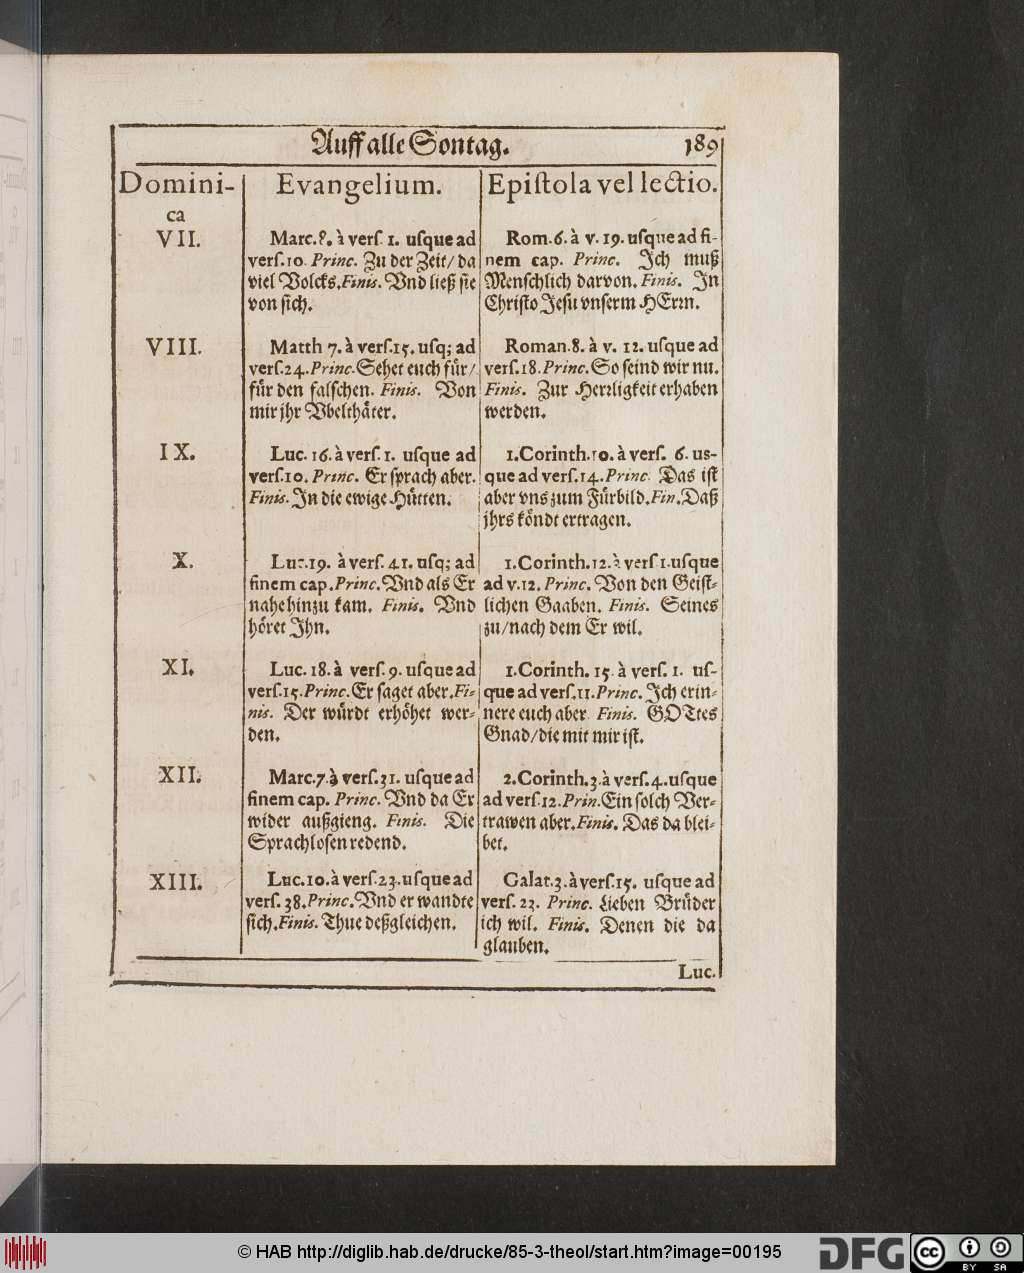 Auff alle Sontag. 189
Domini-
ca
Evangelium.
Epiſtola vel lectio.
VII.
Marc. 8. à verſ. 1. uſque ad
verſ. 10. Princ. Zu der Zeit/ da
viel Volcks. Finis. Vnd ließ ſie
von ſich.
Rom. 6. à v. 19. uſque ad fi-
nem cap. Princ. Ich muß
Menſchlich darvon. Finis. In
Chriſto Jeſu vnſerm HErrn.
VIII.
Matth 7. à verſ. 15. uſq; ad
verſ. 24. Princ. Sehet euch für/
für den falſchen. Finis. Von
mir jhr Vbelthäter.
Roman. 8. à v. 12. uſque ad
verſ. 18. Princ. So ſeind wir nu.
Finis. Zur Herrligkeit erhaben
werden.
IX.
Luc. 16. à verſ. 1. uſque ad
verſ. 10. Princ. Er ſprach aber.
Finis. In die ewige Hütten.
1. Corinth. 10. à verſ. 6. us-
que ad verſ. 14. Princ. Das iſt
aber vns zum Fürbild. Fin. Daß
jhrs köndt ertragen.
X.
Luc. 19. à verſ. 41. uſq; ad
finem cap. Princ. Vnd als Er
nahe hinzu kam. Finis. Vnd
höret Ihn.
1. Corinth. 12. à verſ 1. uſque
ad v. 12. Princ. Von den Geiſt-
lichen Gaaben. Finis. Seines
zu/ nach dem Er wil.
XI.
Luc. 18. à verſ. 9. uſque ad
verſ. 15. Princ. Er ſaget aber. Fi-
nis. Der würdt erhöhet wer-
den.
1. Corinth. 15. à verſ. 1. uſ-
que ad verſ. 11. Princ. Ich erin-
nere euch aber. Finis. GOTtes
Gnad/ die mit mir iſt.
XII.
Marc. 7. à verſ. 31. uſque ad
finem cap. Princ. Vnd da Er
wider außgieng. Finis. Die
Sprachloſen redend.
2. Corinth. 3. à verſ. 4. uſque
ad verſ. 12. Prin. Ein ſolch Ver-
trawen aber. Finis. Das da blei-
bet.
XIII.
Luc. 10. à verſ. 23. uſque ad
verſ. 38. Princ. Vnd er wandte
ſich. Finis. Thue deßgleichen.
Galat. 3. à verſ. 15. uſque ad
verſ. 23. Princ. Lieben Brüder
ich wil. Finis. Denen die da
glauben.
Luc.
© HAB http://diglib.hab.de/drucke/85-3-theol/start.htm?image=00195
DFG
cc BY SA